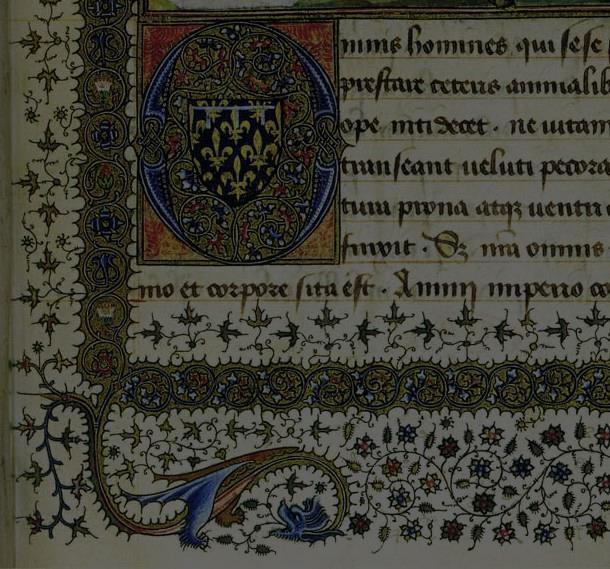 Omnis homines qui sese
prestare ceteris animalib
ope niti decet . ne uitam
transeant ueluti pecora
tura prona atqꝫ uentri o
finxit . Sꝫ nra omnis
mo et corpore sita est . Animi imperio co